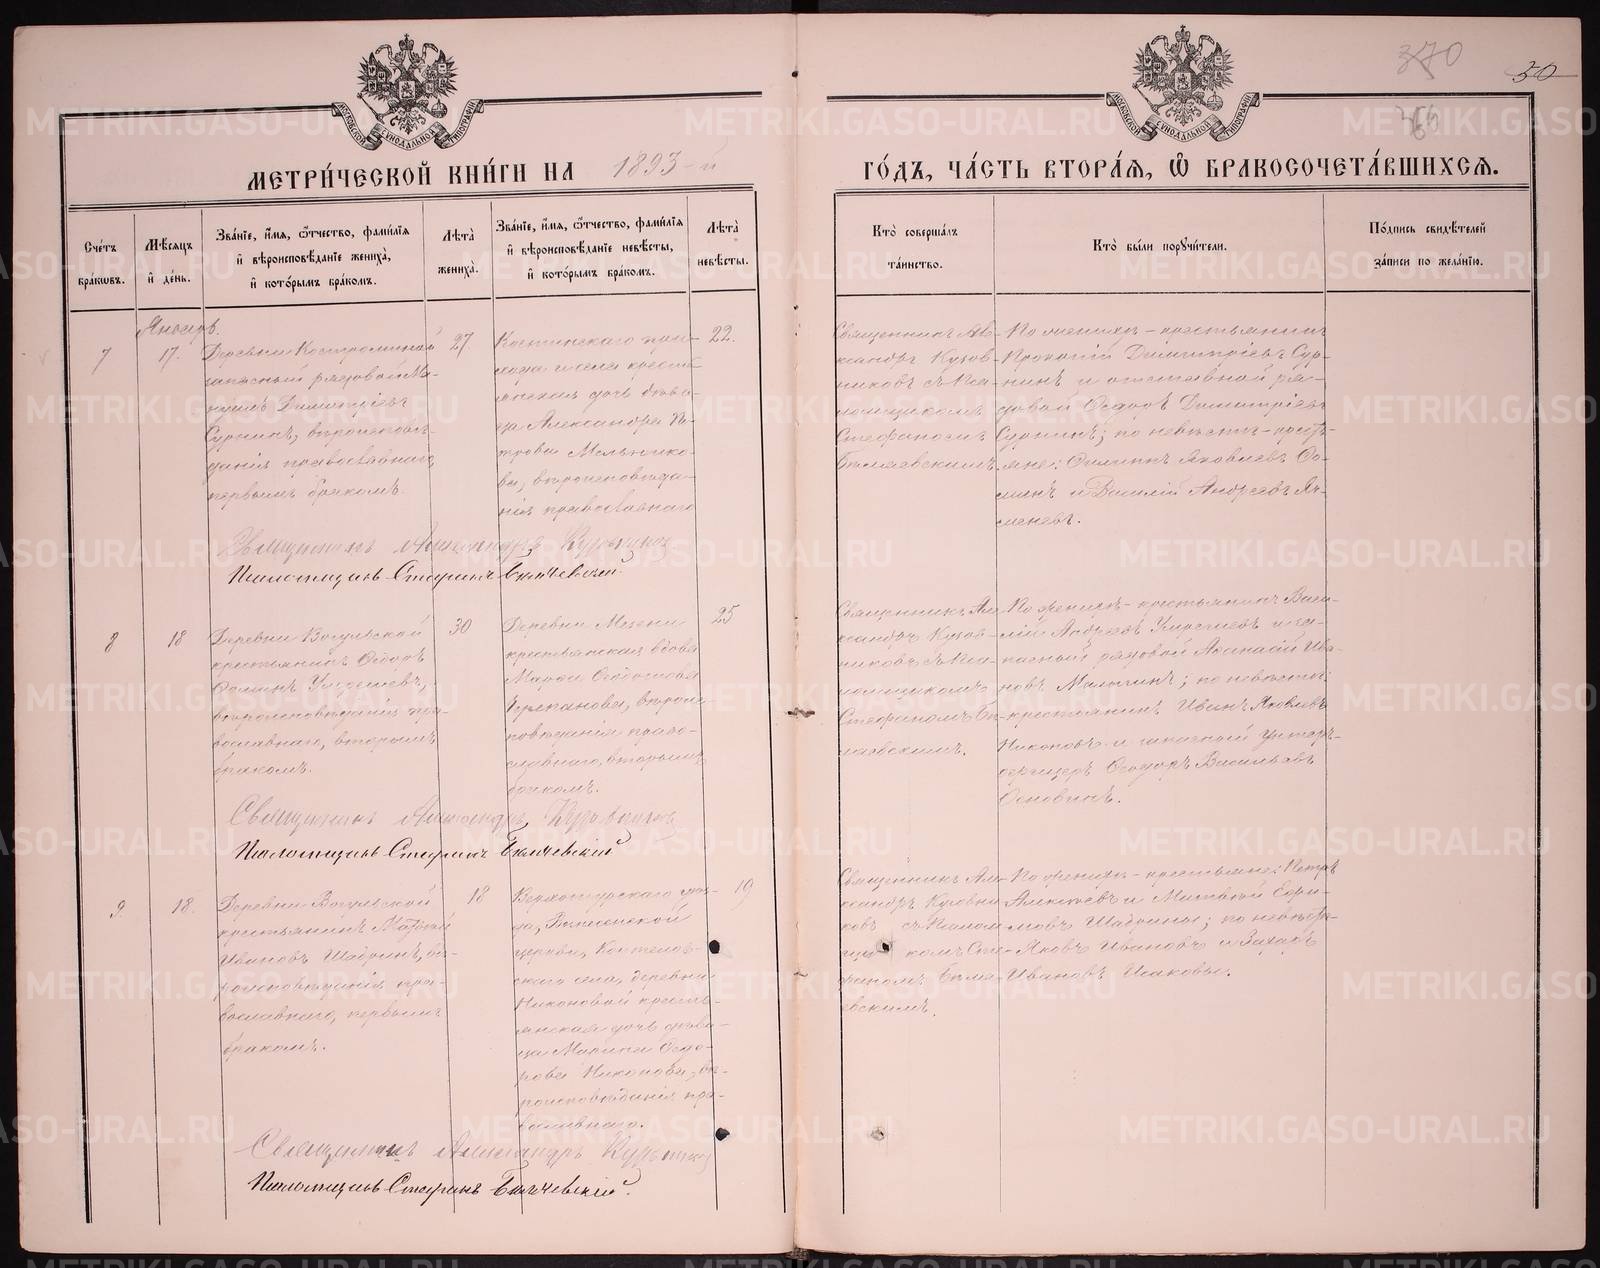 370
50
366
МОСКОВСКОЙ СѴНОДАЛЬНОЙ ТИПОГРАФІИ
МОСКОВСКОЙ СѴНОДАЛЬНОЙ ТИПОГРАФІИ
МЕТРИ́ЧЕСКОЙ КНИ́ГИ НА 1893-й
ГО́ДЪ, ЧА́СТЬ ВТОРА́Я, Ѽ БРАКОСОЧЕТА́ВШИХСЯ.
Сче́тъ
бра́кѡвъ.
Мѣ́сяцъ
и҆ де́нь.
Зва́нїе, и҆́мя, ѻ҆́тчество, фами́лїя
и҆ вѣроисповѣ́данїе жениха̀,
и҆ кото́рымъ бра́комъ.
Лѣ́та
жениха̀.
Зва́нїе, и҆́мя, ѻ҆́тчество, фами́лїя
и҆ вѣроисповѣ́данїе невѣ́сты,
и҆ кото́рымъ бра́комъ.
Лѣ́та
невѣ́сты.
Кто̀ соверша́лъ
та́инство.
Кто̀ бы́ли порꙋчи́тели.
По́дпись свидѣ́телей
за́писи по жела́нїю.
Январь.
7
17.
Деревни Костроминой
запасный рядовой
Димитріевъ
Сурнинъ, вѣроиспове-
данія православнаго,
первымъ бракомъ.
27.
Костинскаго при-
хода и села кресть-
янская дочь дѣви-
ца Александра Пе-
трова Мельнико-
ва, вѣроисповѣда-
нія православнаго
22.
Священникъ Але-
ксандръ
никовъ съ Пса-
ломщикомъ
Стефаномъ
По женихѣ - крестьянинъ
Прокопій Димитріевъ Сур-
нинъ и отставной ря-
довой Ѳедоръ Димитріевъ
Сурнинъ; по невѣстѣ - кресть-
яне: Филиппъ Яковлевъ
и Василій Андреевъ Яч-
меневъ.
Священникъ Александръ
Псаломщикъ Стефанъ
8
18
Деревни Вогульской
крестьянинъ Ѳедоръ
вѣроисповѣданія пра-
вославнаго, вторымъ
бракомъ.
30
Деревни Мезени
крестьянская вдова
Марѳа Ѳедотова
Черепанова, вѣроис-
повѣданія право-
славнаго, вторымъ
бракомъ.
25
Священникъ Але-
ксандръ
никовъ съ Пса-
ломщикомъ
Стефаномъ
По женихѣ - крестьянинъ Васи-
лій Андреевъ и за-
пасный рядовой Аѳанасій Ива-
новъ; по невѣстѣ:
крестьянинъ Иванъ Яковлевъ
Никоновъ и запасный унтеръ-
офицеръ Ѳеодоръ Васильевъ
Священникъ Александръ
Псаломщикъ Стефанъ
9.
18.
Деревни Вогульской
крестьянинъ Матвѣй
Ивановъ Шабринъ, вѣ-
роисповѣданія пра-
вославнаго, первымъ
бракомъ.
18
Верхотурскаго уѣз-
да,
церкви,
скаго села, деревни
Никоновой кресть-
янская дочь дѣви-
ца Марина Ѳедо-
рова Никонова, вѣ-
роисповѣданія пра-
вославнаго.
19
Священникъ Але-
ксандръ
ковъ съ Псалом-
щикомъ Сте-
фаномъ
По женихѣ - крестьяне: Петръ
Алексѣевъ и Матвѣй
Шабрины; по невѣстѣ:
Яковъ Ивановъ и Захаръ
Ивановъ Исаковы.
Священникъ Александръ
Псаломщикъ Стефанъ
METRIKI.GASO-URAL.RU